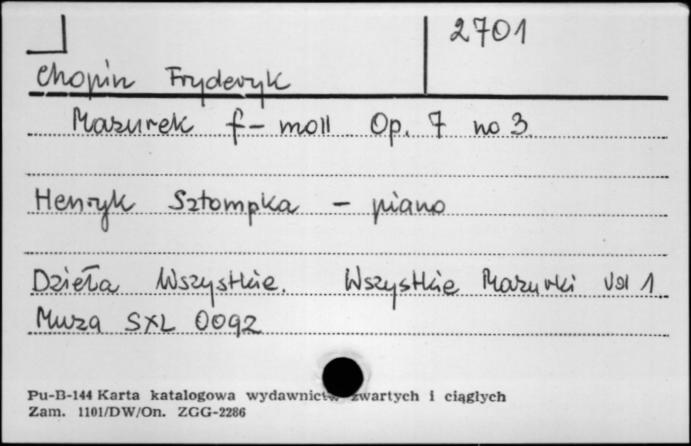 2701
Chopin Fryderyk
Mazurek f-moll Op. 7 no 3
Henryk Sztompka - piano
Dzieła Wszystkie. Wszystkie Mazurki vol 1
Muza SXL 0092
Pu-B-144 Karta katalogowa wydawnictw zwartych i ciągłych
Zam. 1101/DW/On. ZGG-2286